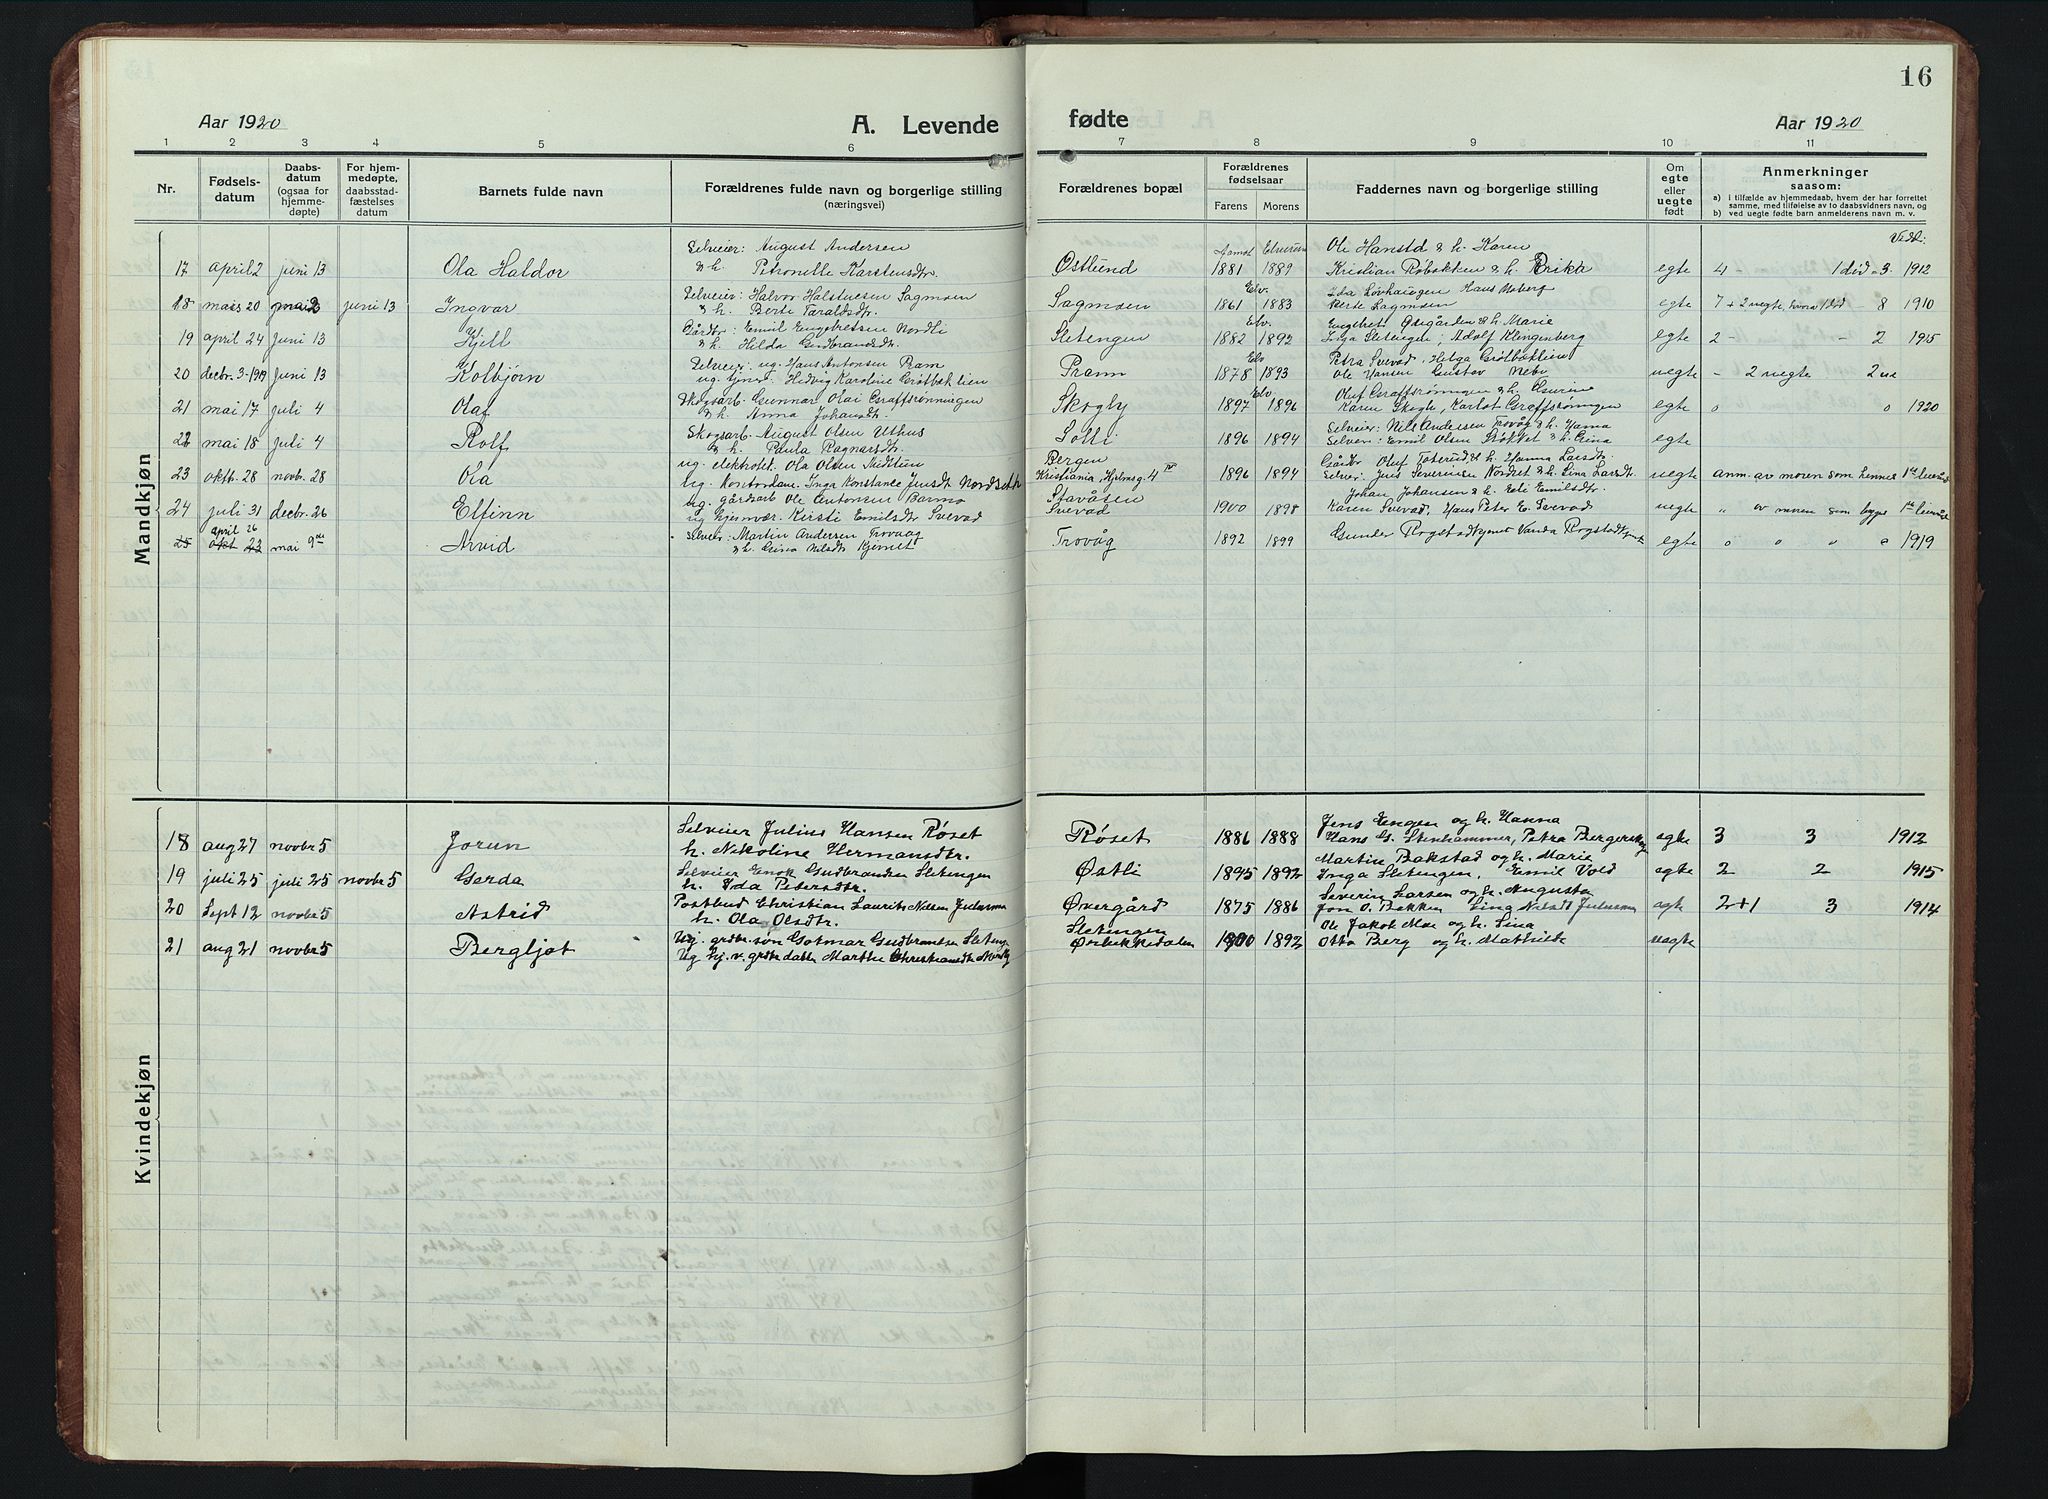 16
Aar 1920
A. Levende fødte
Aar 1920
1 2 3 4 5 6 7 8 9 10 11
Nr.
Fødsels-
datum
Daabs-
datum
(ogsaa for
hjemme-
døpte)
For hjem-
medøpte,
daabsstad-
fæstelses
datum
Barnets fulde navn
Forældrenes fulde navn og borgerlige stilling
(næringsvei)
Forældrenes bopæl
Forældrenes
fødselsaar
Farens Morens
Faddernes navn og borgerlige stilling
Om
egte
eller
uegte
født
Anmerkninger
saasom:
a) i tilfælde av hjemmedaab, hvem der har forrettet
samme, med tilføielse av to daabsvidners navn, og
b) ved uegte fødte barn anmelderens navn m. v.
Mandkjøn
Selveier: August Andersen Aamot Elverum Ole Hanstd & h. Karen Vedt:
17 april 2 juni 13 Ola Haldor & h. Petronelle Karstensdtr. Østlund 1881 1889 Kristian Robakken & h. Erika egte 4 - 1 død - 3. 1912
Selveier: Halvor Halstensen Sagmoen Elv. Ida Løvhaugen Hans Neberg
18 mars 20 mai 2 juni 13 Ingvar & h. Berte Taraldsdtr. Sagmoen 1861 1883 Berte Sagmoen egte 7 + 2 uegte, hvorav 1 død - 8 1910
Gårdbr: Emil Engebretsen Nordli Elv. Engebret Øsegården & h. Marie
19 april 24 juni 13 Kjell & h. Hilda Gudbrandsdtr. Sletengen 1882 1892 Inga Sletengen, Adolf Klingenberg egte 2 - - 2 1915
Selveier: ug. Hans Antonsen Pram Elv Petra Svevad. Helga Grøtbæklien
20 decbr. 3-1919 juni 13 Kolbjørn ug. tjener Hedvig Karoline Grøtbæklien Pramm 1878 1893 Ole Hansen Gustav Neby uegte - 2 uegte 2 ue
Skogsarb. Gunnar Olai Graffsrønningen Elv Oluf Graffsrønningen & h. Gurine
21 mai 17 juli 4 Olaf & h. Anna Johansdtr. Skogly 1897 1896 Karen Skogly, Karlot Graffsrøningen egte 0 0 1920
Skogsarb. August Olsen Uthus Selveier: Nils Andersen Trovåg & h. Hanna
22 mai 18 juli 4 Rolf & h. Paula Ragnarsdtr. Solli 1896 1894 Selveier: Emil Olsen Stokket & h. Grina egte
ug. elektrotet. Ola Olsen Midtlien Bergen Gårdbr Oluf Toterud & h. Hanna Larsdtr.
23 oktb. 28 novb. 28 Ola ug. kontordame Inga Konstance Jensdtr Nordseth Kristiania, Hjelmsg. 4 IV 1896 1894 Selveier: Jens Severinsen Nordset & h. Lina Larsdtr. uegte anm. av moren som hennes 1ste levende
ug. gårdsarb Ole Antonsen Barmo Stavåsen Johan Johansen & h. Eli Emilsdtr.
24 juli 31 decbr. 26 Elfinn ug hjemvær. Kirsti Emilsdtr Svevad Svevad 1900 1898 Karen Svevad, Hans Peter E. Svevad uegte " av moren som begges 1ste levende
april 26 Selveier: Martin Andersen Trovaag
25 okt 23 mai 9de Arvid & h. Grina Nilsdtr Kjernet Trovåg 1892 1899 Gunder Rogstadkjernet Vanda Rogstadkjernet egte 0 0 0 0 1919
Kvindekjøn
Selveier Julius Hansen Røset Jens Engen og h. Hanna
18 aug 27 novbr 5 Jorun h. Nikoline Hermansdtr. Røset 1886 1888 Hans G. Stenhammer, Petra Bergerseng egte 3 3 1912
Selveier Enok Gudbrandsen Sletengen Martin Bakstad og h. Marie
19 juli 25 juli 25 novbr 5 Gerda h. Ida Petersdtr. Østli 1895 1892 Inga Sletengen, Emil Vold egte 2 2 1915
Postbud Christian Laurits Nilsen Julusmo Severin Larsen og h. Augusta
20 Sept 12 novbr 5 Astrid h. Ola Olsdtr. Øvergård 1875 1886 Jon O. Bakken Lina Nilsdt Julusmo egte 2+1 3 1914
Ug. grdbr. søn Gotmar Gudbrantsen Sletengen Sletengen Ole Jakob Moe og h. Lina
21 aug 21 novbr 5 Bergljot Ug hj. v. grdbr datter Marthe Christiansdtr Nordby Ørbekkedalen 1900 1892 Otto Berg og h. Mathilde uegte